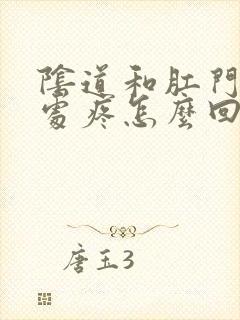 陰道和肛門
處疼怎麼回
唐玉3